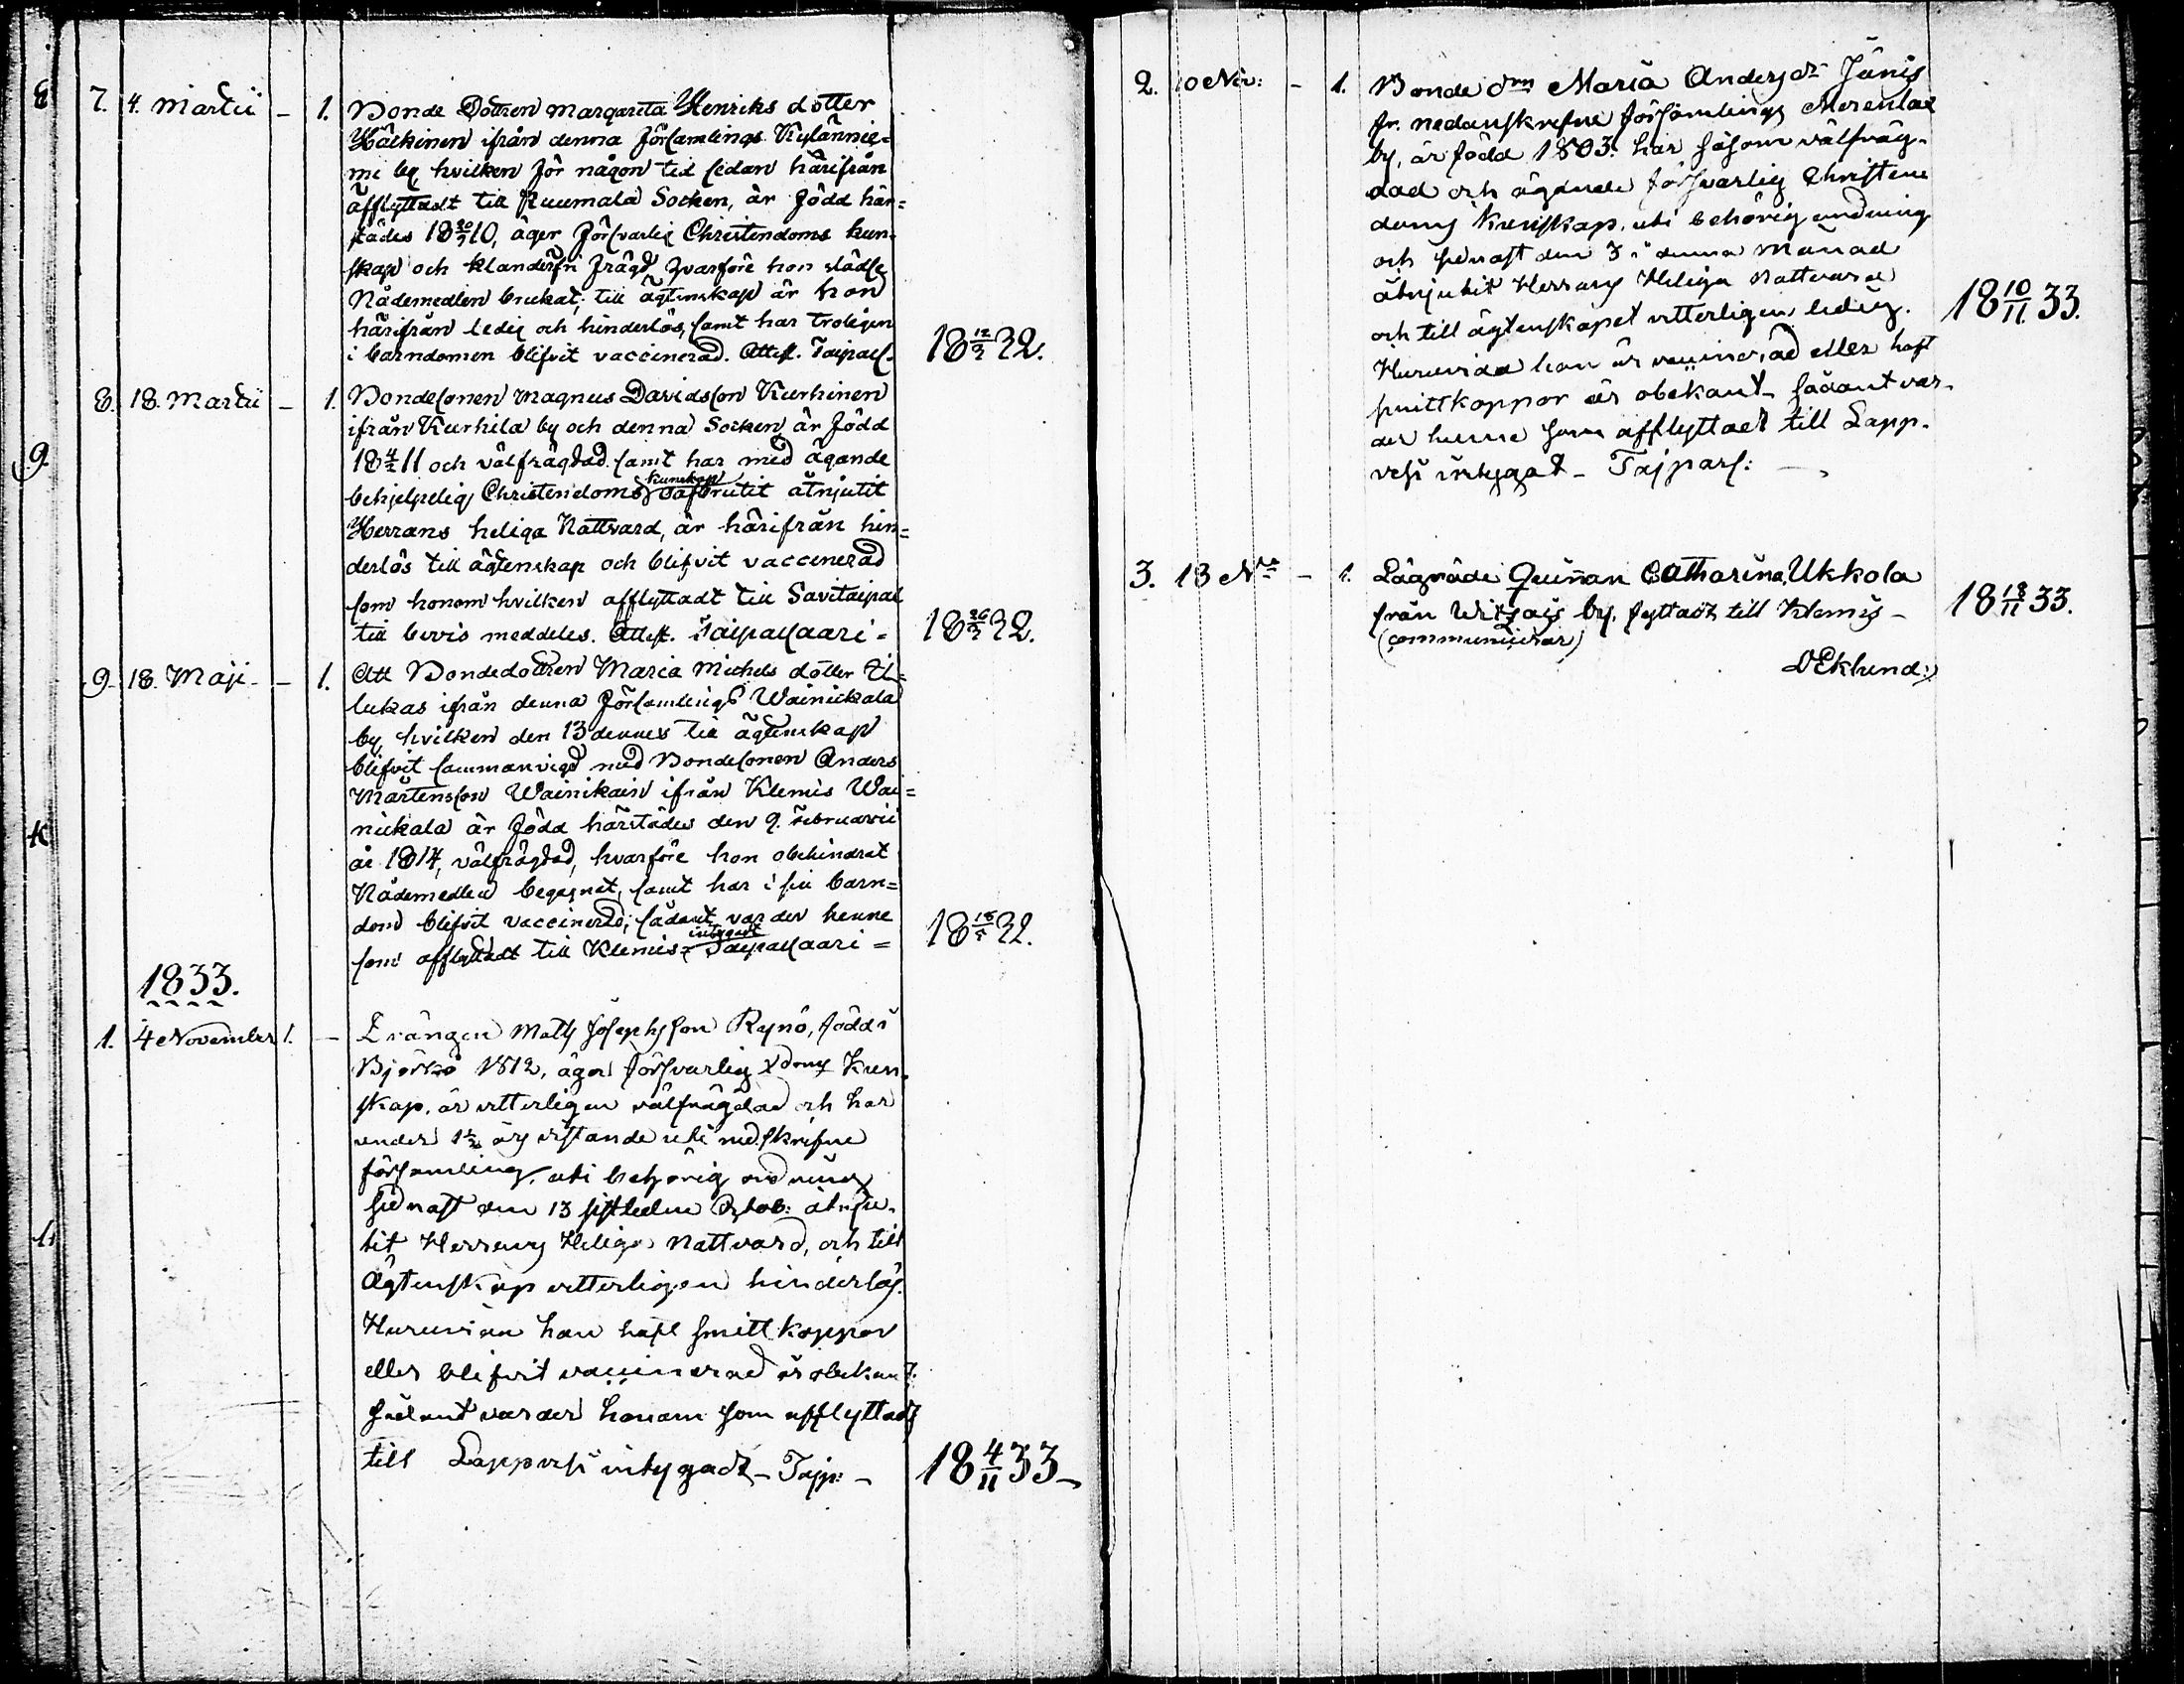 7. 4. Martii - 1. Bonde Dottren Margareta Henriks dotter
Häckinen ifrån denna Församlings Kylännie=
mi by, hvilken för någon tid sedan härifrån
afflyttadt till Ruumala Socken, är född här=
städes 18 20/7 10, äger försvarlig Christendoms kun=
skap och klanderfri frägd, hvarföre hon
Nådemedlen brukat; till ägtenskap är hon
härifrån ledig och hinderlös, samt har troligen
i barndomen blifvit vaccinerad. Attest. Taipals. 18 12/3 32.
8. 18. Martii - 1. Bondesonen Magnus Davidsson Kurhinen
ifrån Kurhila by och denna Socken är född
18 4/2 11 och välfrägdad samt har med ägande
behjelpelig Christendoms kunskap oafbrutit åtnjutit
Herrans heliga Nattvard, är härifrån hin=
derlös till ägtenskap och blifvit vaccinerad
som honom hvilken afflyttadt till Savitaipal
till bevis meddeles. Attest. Taipalsaari = 18 26/3 32.
9. 18. Maji - - 1. Att Bondedottren Maria Michels dotter Ti=
lukas ifrån denna Församlings Wainickala
by, hvilken den 13 dennes till ägtenskap
blifvit sammanvigd med Bondesonen Anders
Mårtensson Wainikain ifrån Klemis Wai=
nickala är född härstädes den 9. Februarii
år 1814, välfrägdad, hvarföre hon obehindrat
Nådemedlen begagnat, samt har i sin barn=
dom blifvit vaccinerad; sådant varder henne
som afflyttadt till Klemis intygadt Taipalsaari = 18 18/5 32.
1833.
1. 4 November 1. - Drängen Matts Josephsson Rynö, född i
Björkö 1812, äger försvarlig Xdoms kun-
skap, är vetterligen välfrägdad och har
under 1 1/2 års vistande uti ned.skrefne
församling, uti behörig ordning
sednast den 13 sistledne Octob: åtnju-
tit Herrans Heliga Nattvard, och till
Ägtenskap vetterligen hinderlös.
Huruvida han haft smittkoppor
eller blifvit vaccinerad är obekant.
sådant varder honom som afflyttadt
till Lappvesi intygadt - Tajp: - 18 4/11 33 -
2. 10 Nov: - 1. Bonde drn Maria Andersdr Jänis
fr. nedanskrefne församlings Merenlax
by, är född 1803. har såsom välfräg-
dad och ägande försvarlig Christen
doms kunskap, uti behörig ordning
och sednast den 3 i denna månad
åtnjutit Herrans Heliga Nattvard
och till ägtenskapet vetterligen ledig. 18 10/11 33.
Huruvida hon är vaccinerad eller haft
smittkoppor är obekant - sådant var-
der henne som afflyttadt till Lapp-
vesi intygadt - Tajpars: -
3. 13 Nov - 1. Quinnan Catharina Ukkola
från by. flyttadt till Klemis - 18 18/11 33.
(communicerar)
DEklund:)
9.
K